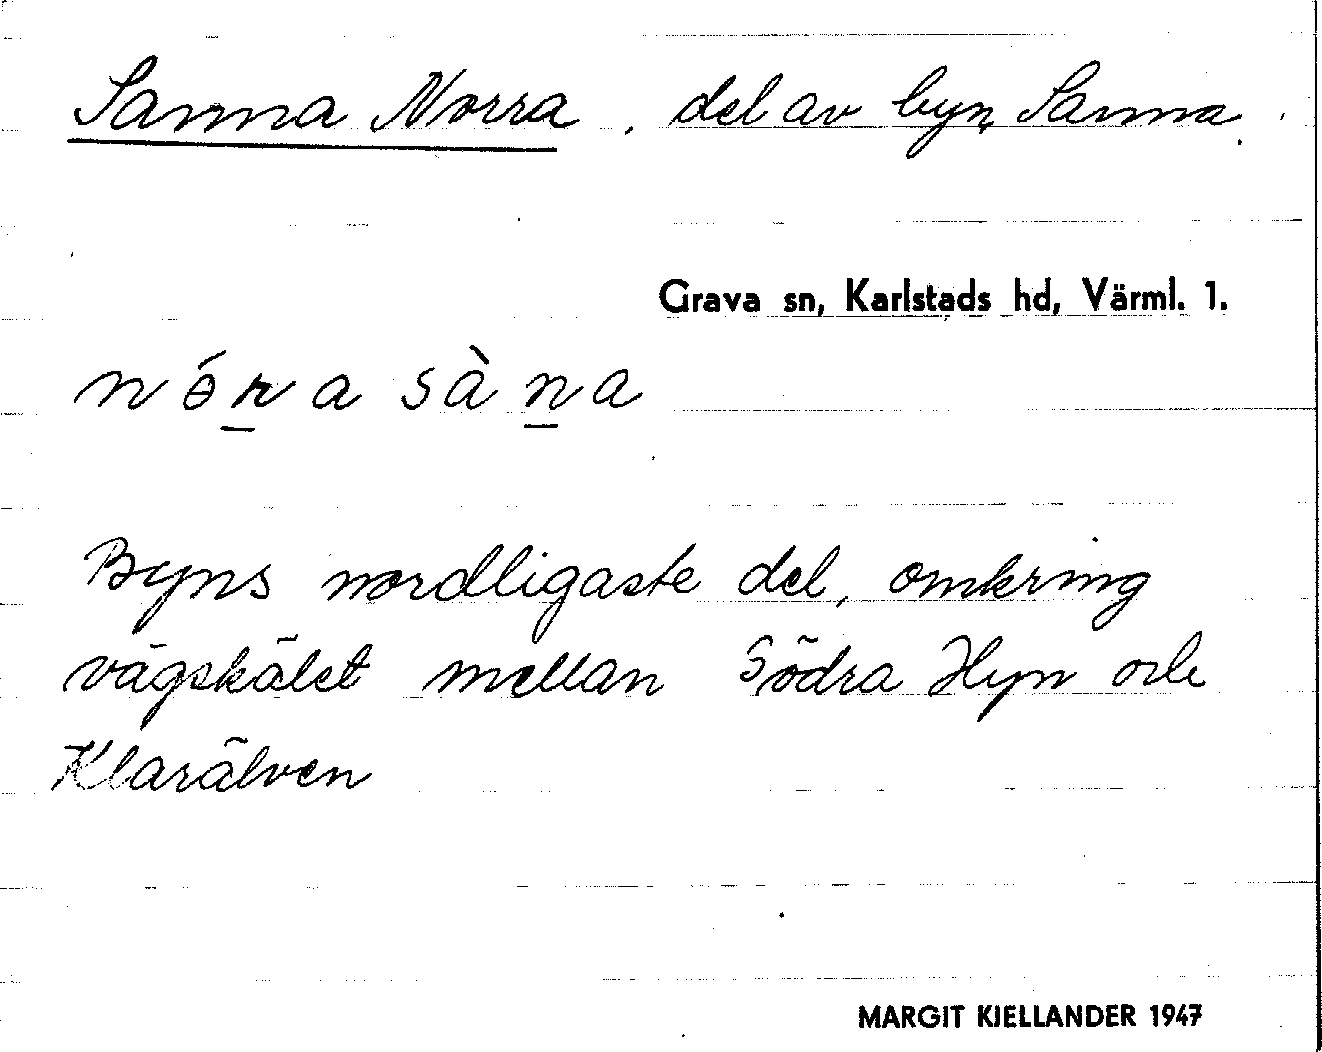 Sanna Norra, del av byn Sanna.
Grava sn, Karlstads hd, Värml. 1.
nǿṟa sàṉa
Byns nordligaste del, omkring
vägskälet mellan Södra Hyn och
Klarälven
MARGIT KJELLANDER 1947